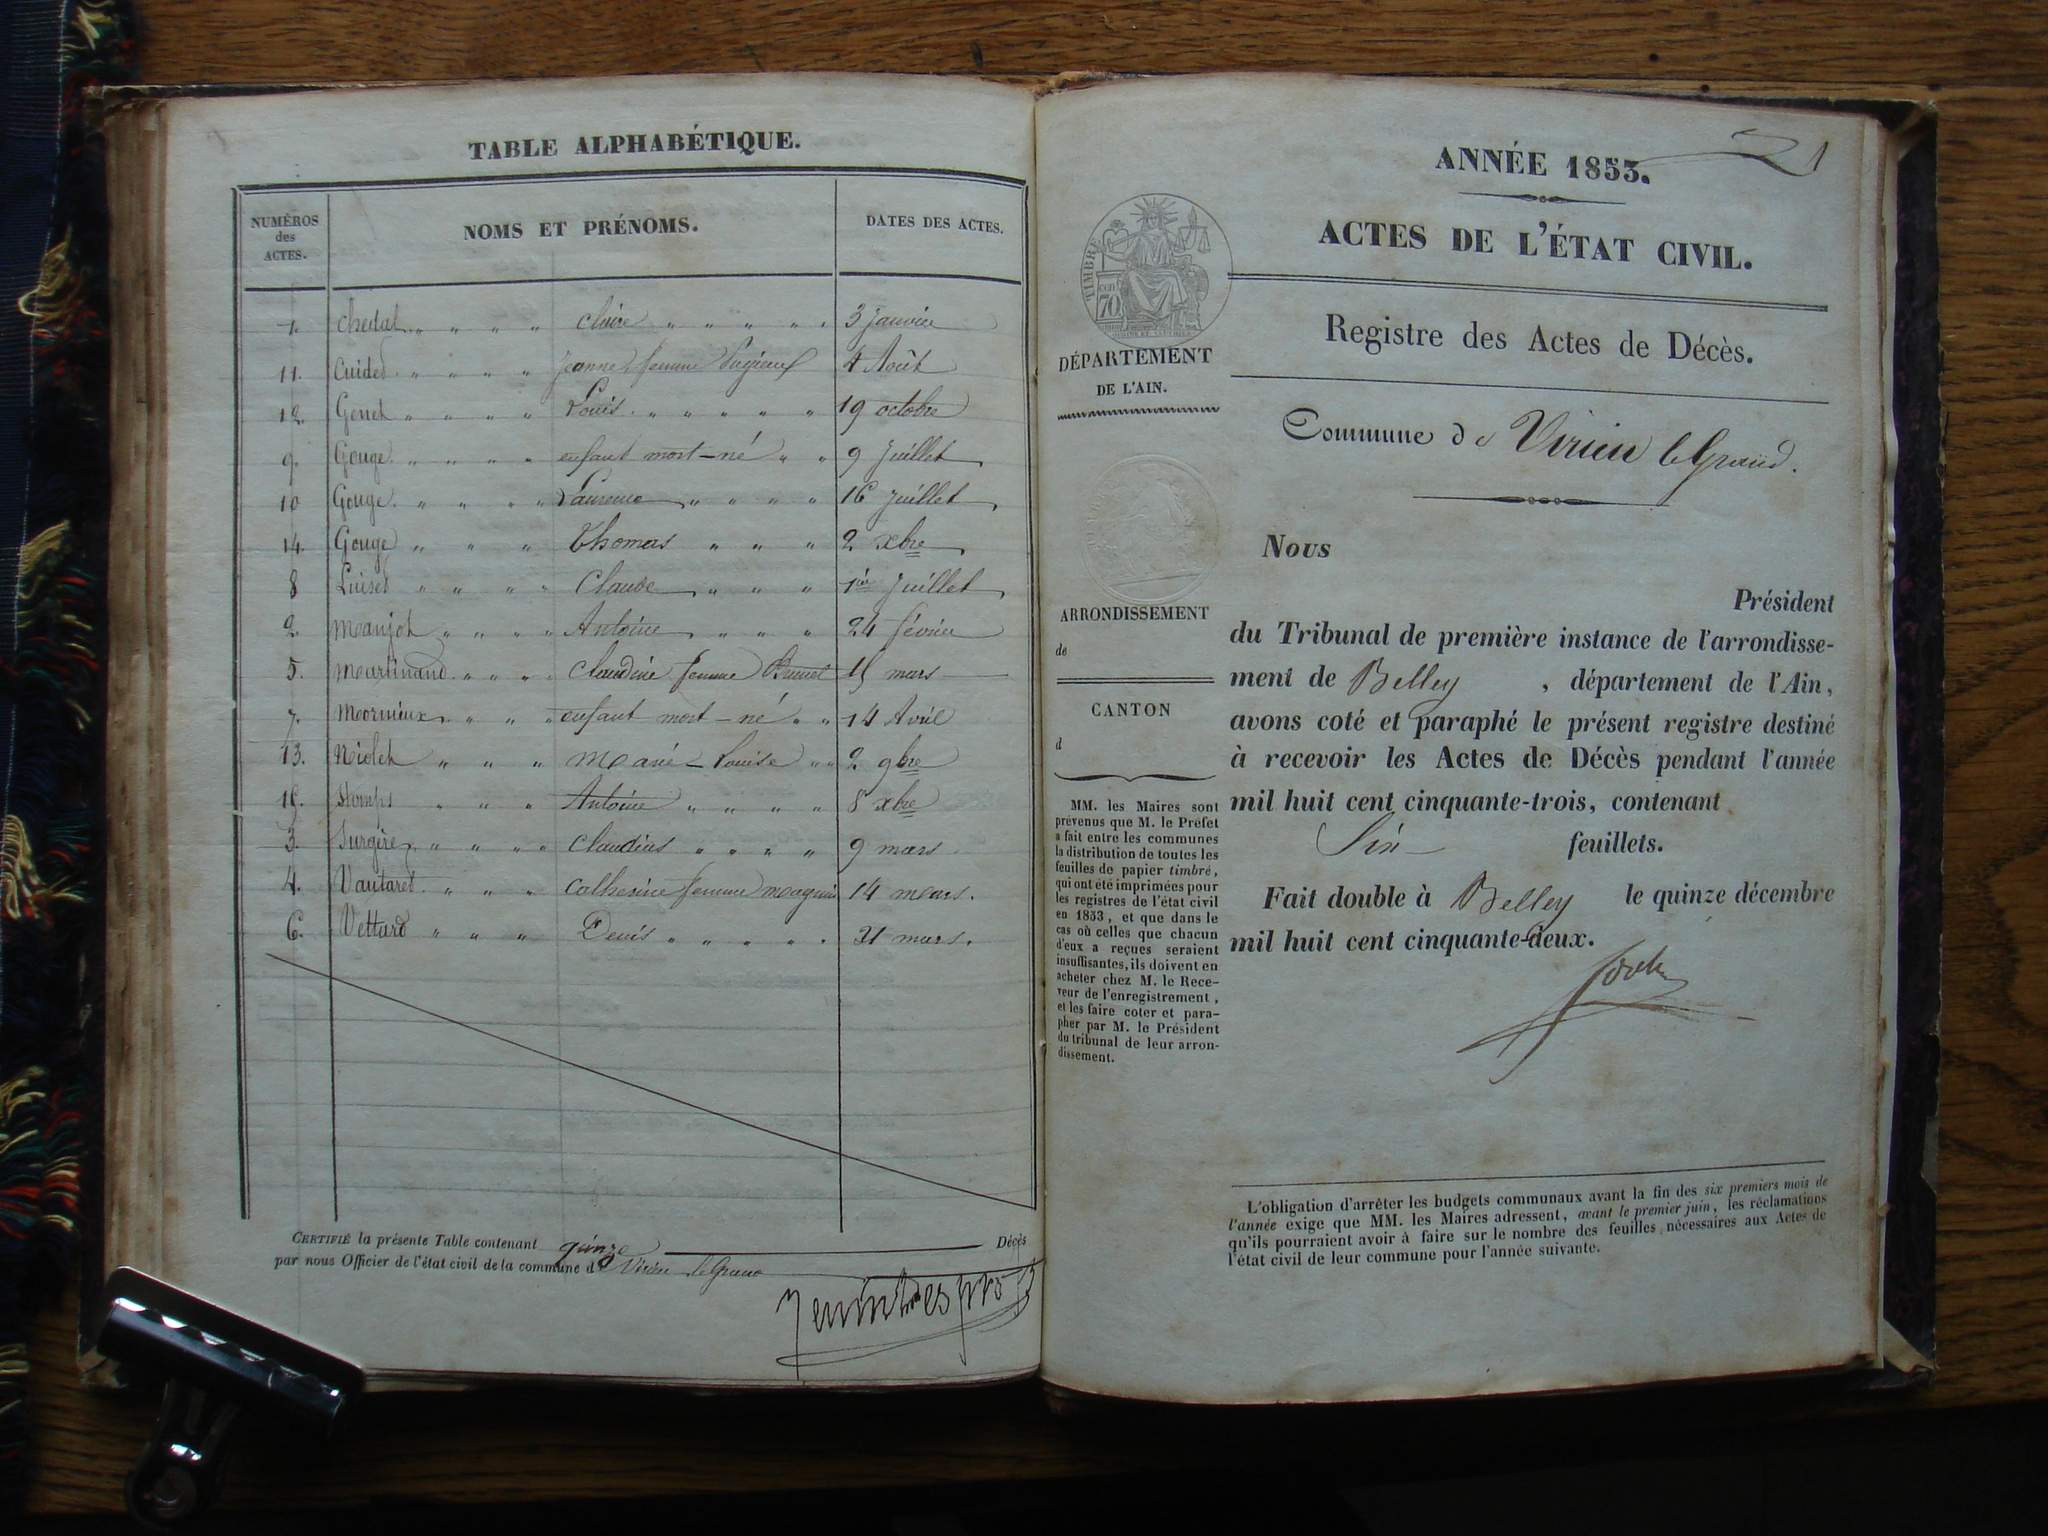 TABLE ALPHABÉTIQUE.
NUMÉROS des ACTES. NOMS ET PRÉNOMS. DATES DES ACTES.
1. Claire 3 Janvier
11. Cuided Jeanne femme 4 Août
12. Genet Louis 19 octobre
9. Gouge enfant mort-né 9 Juillet
10 Gouge Laurence 16 Juillet
14. Gouge Thomas 2 xbre
8 Luised Claude 1er Juillet
2. Manjot Antoine 24 février
5. Martinand Claudine femme Brunet 15 mars
7. Mornieux enfant mort-né 14 Avril
13. Niolet Marie-Louise 2 9bre
15. Antoine 8 xbre
3. Surgère Claudius 9 mars
4. Vautaret Catherine femme Magnin 14 mars.
6. Vettard Denis 21 mars.
CERTIFIÉ la présente Table contenant quinze Décès
par nous Officier de l'état civil de la commune d Virieu le Grand
21
ANNÉE 1853.
ACTES DE L'ÉTAT CIVIL.
TIMBRE
70
Registre des Actes de Décès.
DÉPARTEMENT
DE L'AIN.
Commune de Virieu le Grand.
ARRONDISSEMENT
de
CANTON
d
MM. les Maires sont
prévenus que M. le Préfet
a fait entre les communes
la distribution de toutes les
feuilles de papier timbré,
qui ont été imprimées pour
les registres de l'état civil
en 1853, et que dans le
cas où celles que chacun
d'eux a reçues seraient
insuffisantes, ils doivent en
acheter chez M. le Rece-
veur de l'enregistrement,
et les faire coter et para-
pher par M. le Président
du tribunal de leur arron-
dissement.
Nous
Président
du Tribunal de première instance de l'arrondisse-
ment de Belley , département de l'Ain,
avons coté et paraphé le présent registre destiné
à recevoir les Actes de Décès pendant l'année
mil huit cent cinquante-trois, contenant
Six feuillets.
Fait double à Belley le quinze décembre
mil huit cent cinquante-deux.
L'obligation d'arrêter les budgets communaux avant la fin des six premiers mois de
l'année exige que MM. les Maires adressent, avant le premier juin, les réclamations
qu'ils pourraient avoir à faire sur le nombre des feuilles nécessaires aux Actes de
l'état civil de leur commune pour l'année suivante.